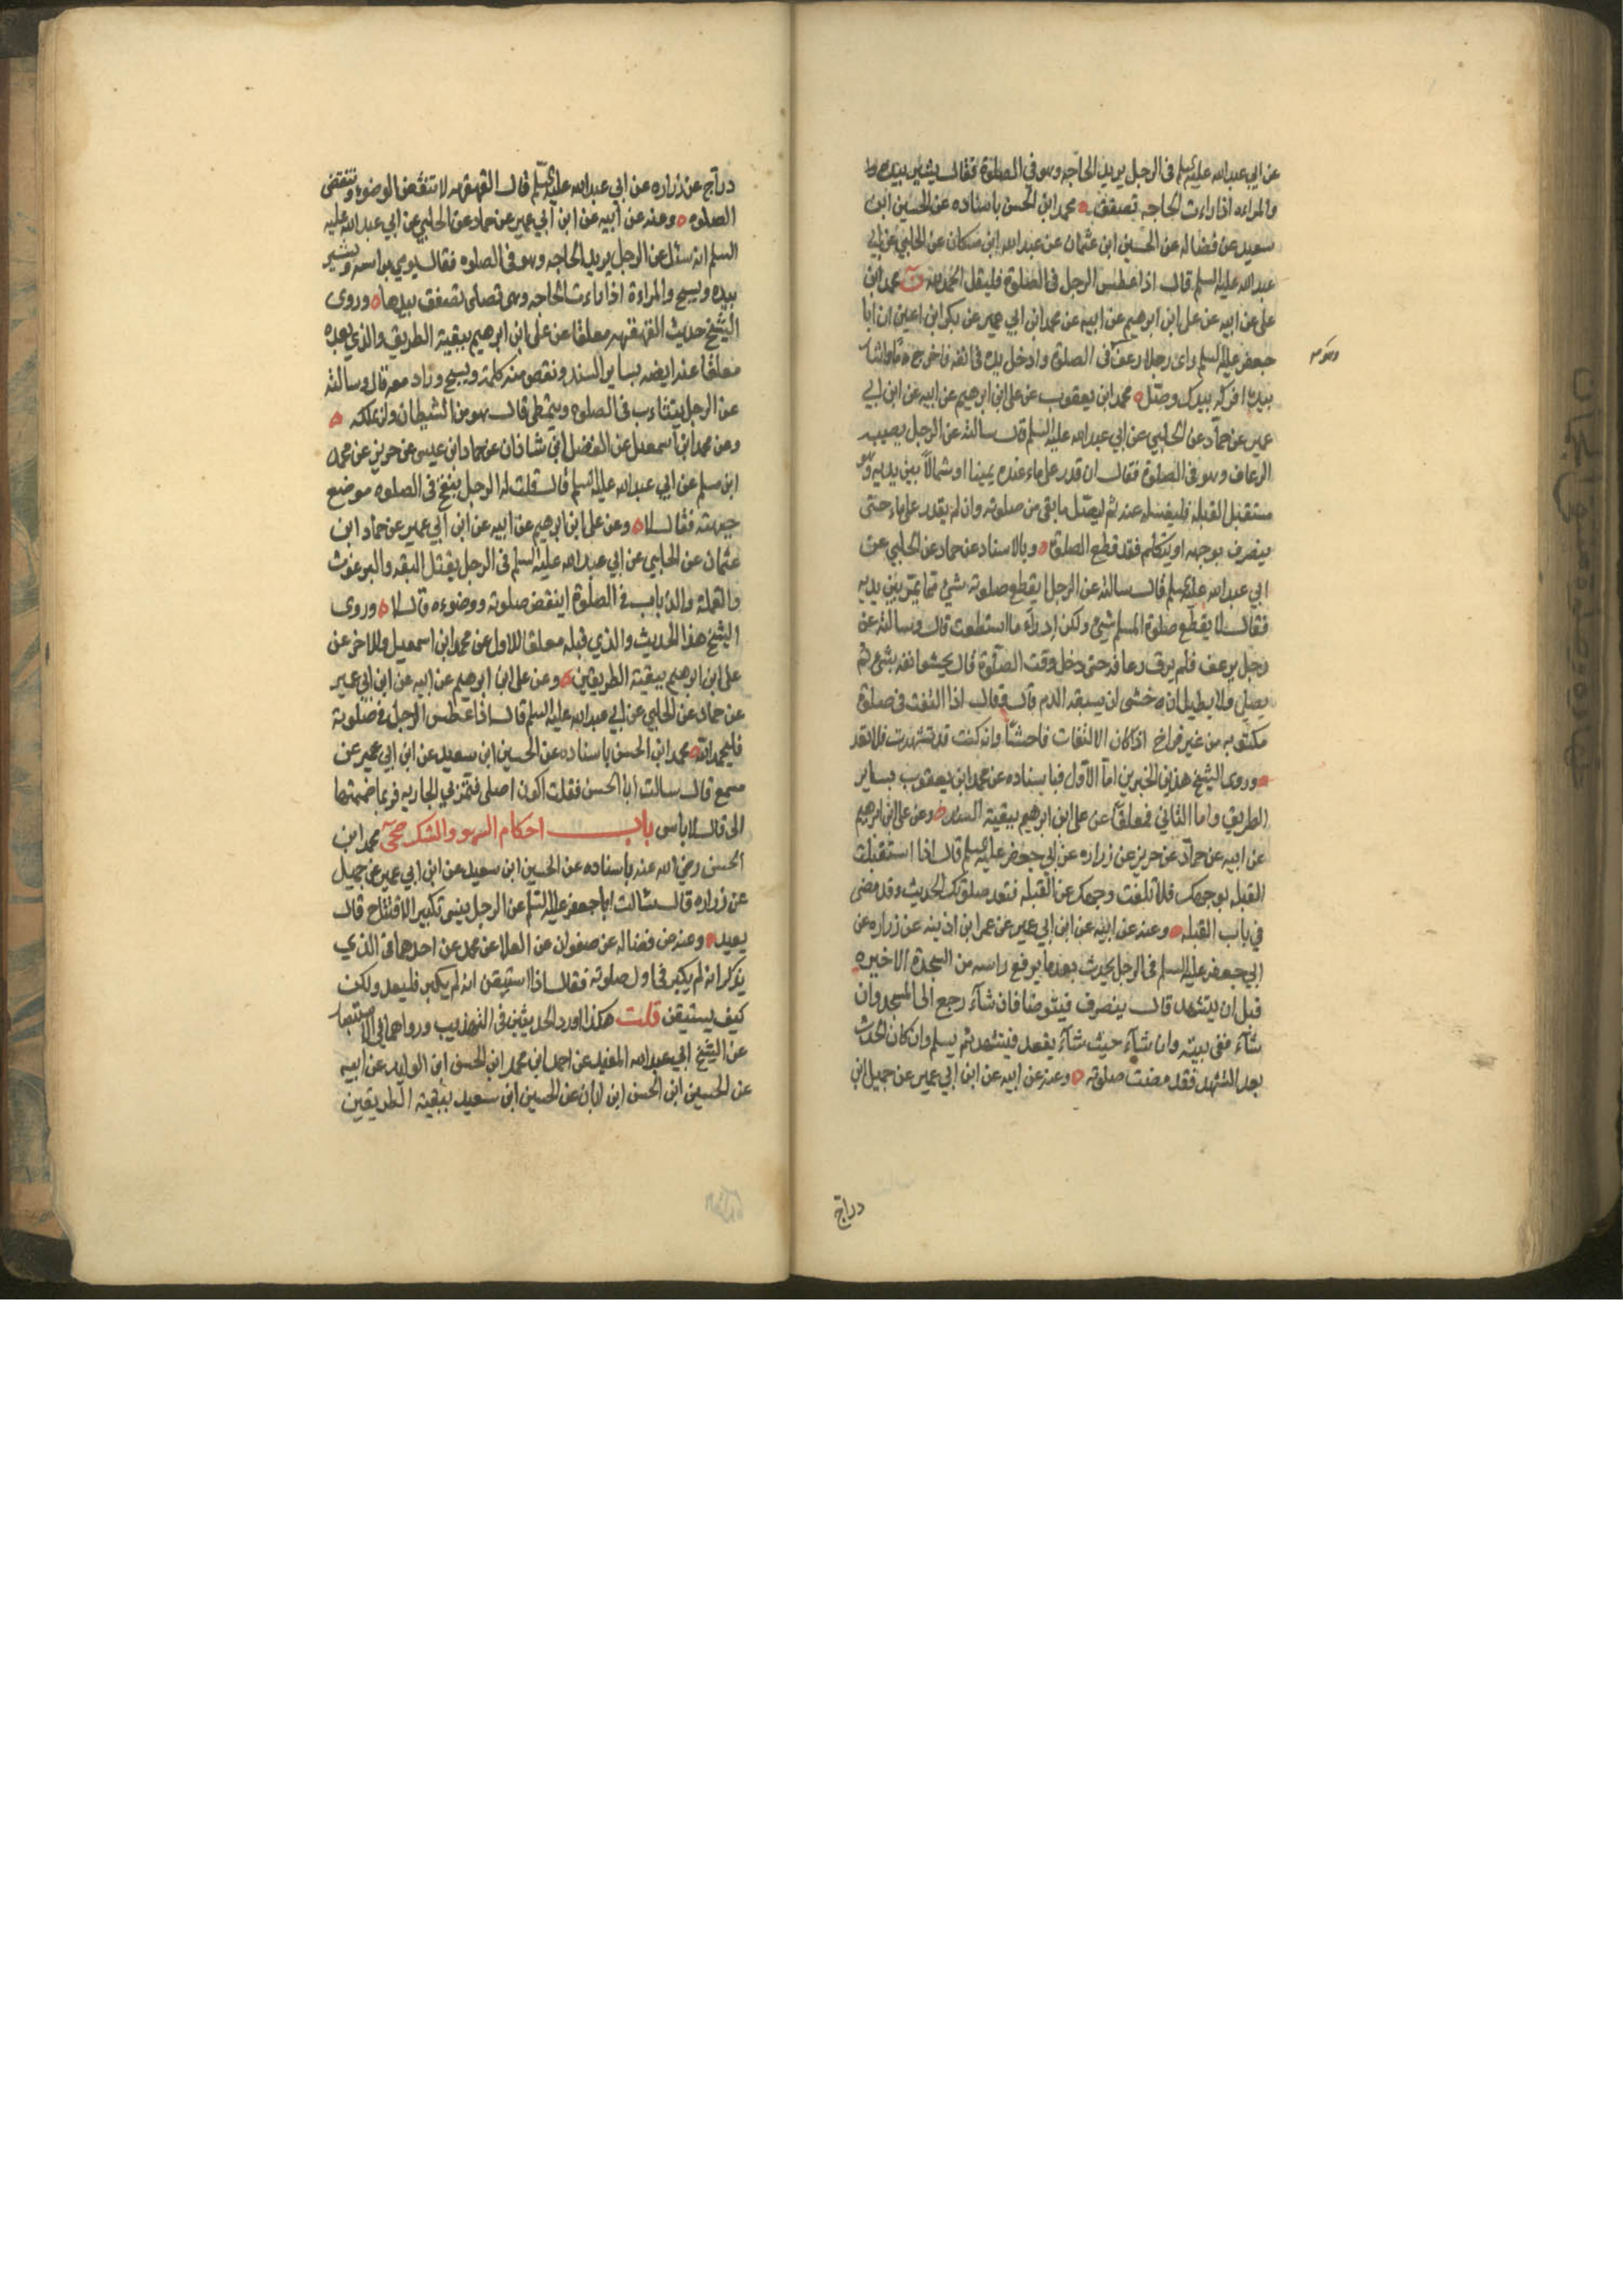 عن ابي عبدالله عليه السلم في الرجل يريد الحاجه وهو في الصلوة فقال يشير بيده
والمراه اذا ارادت الحاجه تصفق محمد ابن الحسن باسناده عن الحسين ابن
سعيد عن فضاله عن الحسين ابن عثمان عن عبدالله ابن مسكان عن الحلبي عن ابي
عبدالله عليه السلم قال اذا عطس الرجل في الصلوة فليقل الحمدلله ن محمد ابن
على عن ابيه عن على ابن ابرهيم عن ابيه عن محمد ابن ابي عمير عن بكر ابن اعين ان ابا
جعفر عليه السلم راى رجلا رعف في الصلوة وادخل يده في انفه فاخرج دما فاشار
بيده افركه بيدك وصل محمد ابن يعقوب عن على ابن ابرهيم عن ابيه عن ابن ابي
عمير عن حماد عن الحلبي عن ابي عبدالله عليه السلم قال سالته عن الرجل يصيبه
الرعاف وهو في الصلوة فقال ان قدر على ماء عنده يمينا او شمالا بين يديه وهو
مستقبل القبله فليغسله عنه ثم ليصل ما بقى من صلوته وان لم يقدر على ماء حتى
ينصرف بوجهه او يتكلم فقد قطع الصلوة وبالاسناد عن حماد عن الحلبي عن
ابي عبدالله عليه السلم قال سالته عن الرجل ايقطع صلوته شئ مما يمر بين يديه
فقال لا يقطع صلوة المسلم شئ ولكن ادراء ما استطعت قال وسالته عن
رجل يرعف فلم يرق رعافه حتى دخل وقت الصلوة قال يحشو انفه بشئ ثم
يصلي ولا يطيل ان خشى ان يسبقه الدم قال وقال اذا التفت في صلوة
مكتوبه من غير فراغ اذا كان الالتفات فاحشا وان كنت قد تشهدت فلا تعد
وروى الشيخ هذين الخبرين اما الاول فباسناده عن محمد ابن يعقوب بساير
الطريق واما الثاني فمعلقا عن على ابن ابرهيم ببقية السند وعن على ابن ابرهيم
عن ابيه عن حماد عن حريز عن زراره عن ابي جعفر عليه السلم قال اذا استقبلت
القبله بوجهك فلا تلفت وجهك عن القبله فتفسد صلوتك الحديث وقد مضى
في باب القبله وعنه عن ابيه عن ابن ابي عمير عن عمر ابن اذينه عن زراره عن
ابي جعفر عليه السلم في الرجل يحدث بعدما يرفع راسه من السجدة الاخيره
قبل ان يتشهد قال ينصرف فيتوضا فان شآء رجع الى المسجد وان
شآء ففى بيته وان شآء حيث شآء يقعد فيتشهد ثم يسلم وان كان الحدث
بعد التشهد فقد مضت صلوته وعنه عن ابيه عن ابن ابي عمير عن جميل ابن
دراج
دراج عن زراره عن ابي عبدالله عليه السلم قال القهقهه لا تنقض الوضوء وتنقض
الصلوه وعنه عن ابيه عن ابن ابي عمير عن حماد عن الحلبي عن ابي عبدالله عليه
السلم انه سئل عن الرجل يريد الحاجه وهو في الصلوه فقال يومي براسه ويشير
بيده ويسبح والمراءة اذا ارادت الحاجه وهى تصلى تصفق بيدها وروى
الشيخ حديث القهقهه معلقا عن على ابن ابرهيم ببقية الطريق والذي بعده
معلقا عنه ايضه بساير السند ونقص منه كلمة ويسبح وزاد معه قال وسالته
عن الرجل يتثاءب في الصلوه ويتمطى قال هو من الشيطان ولن يملكه
وعن محمد ابن اسمعيل عن الفضل ابن شاذان عن حماد ابن عيسى عن حريز عن محمد
ابن مسلم عن ابي عبدالله عليه السلم قال قلت له الرجل ينفخ في الصلوه موضع
جبهته فقال لا وعن على ابن ابرهيم عن ابيه عن ابن ابي عمير عن حماد ابن
عثمان عن الحلبي عن ابي عبدالله عليه السلم في الرجل يقتل البقه والبرغوث
والقمله والذباب في الصلوة اينقض صلوته ووضوءه قال لا وروى
الشيخ هذا الحديث والذي قبله معلقا للاول عن محمد ابن اسمعيل وللاخر عن
على ابن ابرهيم ببقية الطريقين وعن على ابن ابرهيم عن ابيه عن ابن ابي عمير
عن حماد عن الحلبي عن ابي عبدالله عليه السلم قال اذا عطس الرجل في صلوته
فليحمد الله محمد ابن الحسن باسناده عن الحسين ابن سعيد عن ابن ابي عمير عن
مسمع قال سالت ابا الحسن فقلت اكون اصلى فتمر بي الجاريه فربما ضممتها
الى قال لا باس باب احكام السهو والشك صحى محمد ابن
الحسن رضي الله عنه باسناده عن الحسين ابن سعيد عن ابن ابي عمير عن جميل
عن زراره قال سئالت ابا جعفر عليه السلم عن الرجل ينسى تكبير الافتتاح قال
يعيد وعنه عن فضاله عن صفوان عن العلا عن محمد عن احدهما في الذي
يذكر انه لم يكبر في اول صلوته فقال اذا استيقن انه لم يكبر فليعد ولكن
كيف يستيقن قلت هكذا اورد الحديثين في التهذيب ورواهما في الاستبصار
عن الشيخ ابي عبدالله المفيد عن احمد ابن محمد ابن الحسن ابن الوليد عن ابيه
عن الحسين ابن الحسن ابن ابان عن الحسين ابن سعيد ببقية الطريقين